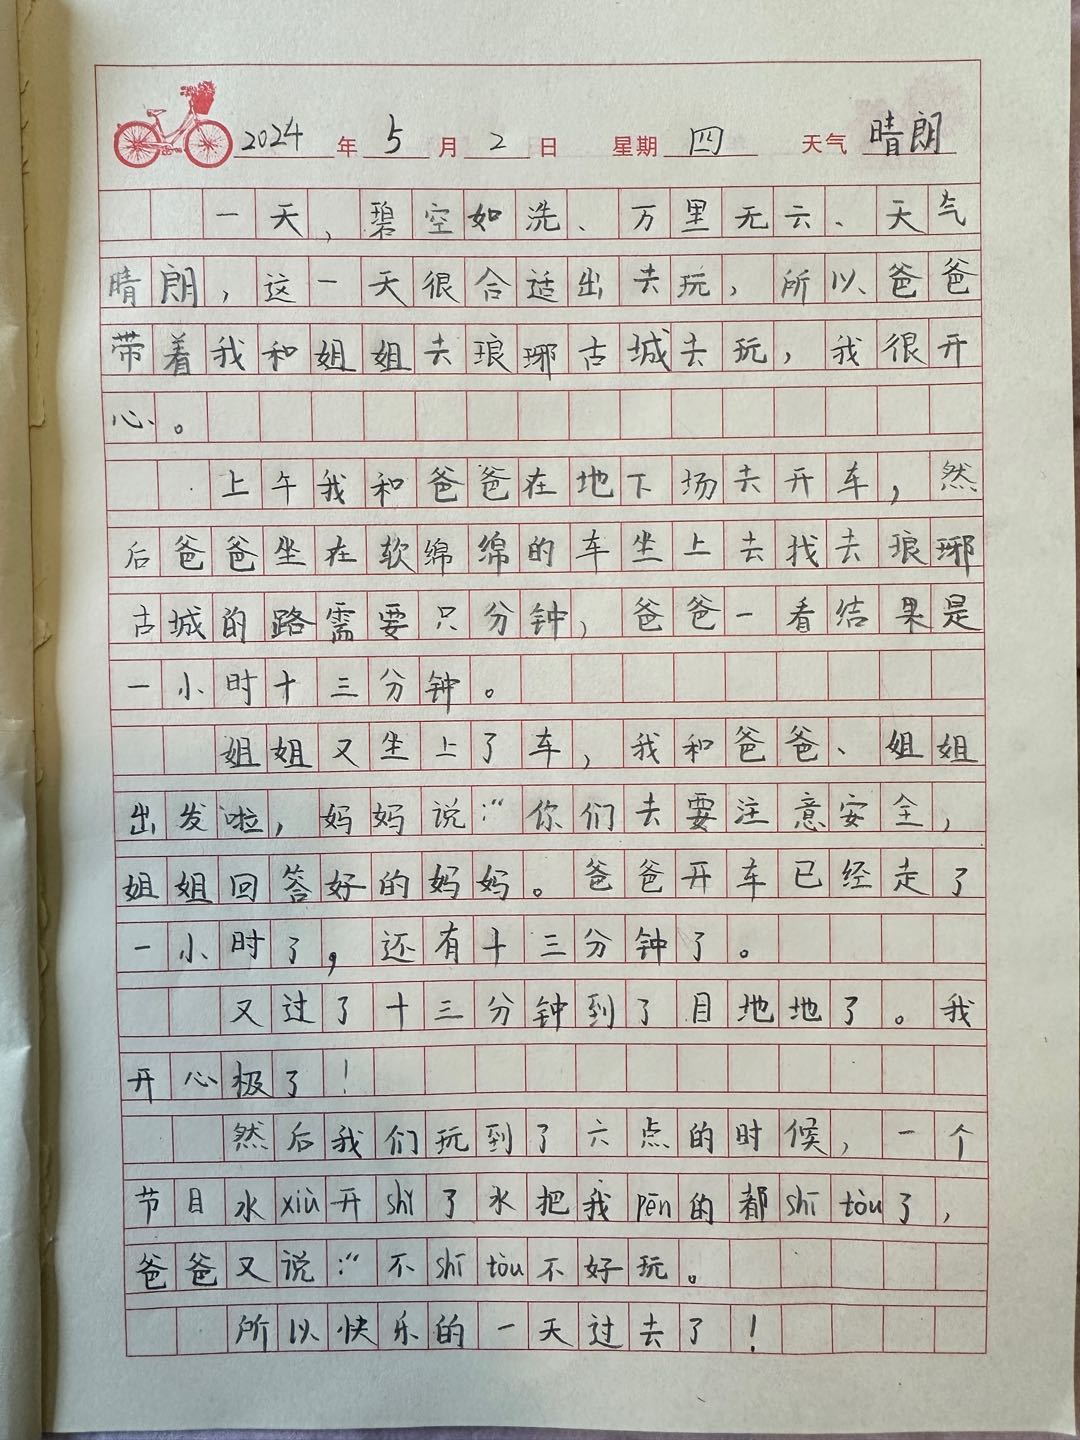 2024年5月2日 星期四 天气晴朗
一天，碧空如洗、万里无云、天气
晴朗，这一天很合适出去玩，所以爸爸
带着我和姐姐去琅琊古城去玩，我很开
心。
上午我和爸爸在地下场去开车，然
后爸爸坐在软绵绵的车坐上去找去琅琊
古城的路需要只分钟，爸爸一看结果是
一小时十三分钟。
姐姐又坐上了车，我和爸爸、姐姐
出发啦，妈妈说：“你们去要注意安全，
姐姐回答好的妈妈。爸爸开车已经走了
一小时了，还有十三分钟了。
又过了十三分钟到了目地地了。我
开心极了！
然后我们玩到了六点的时候，一个
节目水xiù开shǐ了水把我pēn的都shī tòu了，
爸爸又说：“不shī tòu不好玩。
所以快乐的一天过去了！